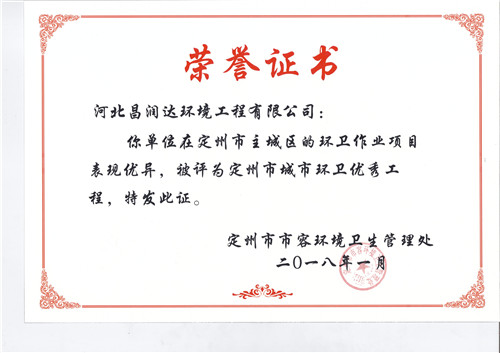 荣誉证书
河北昌润达环境工程有限公司：
你单位在定州市主城区的环卫作业项目
表现优异，被评为定州市城市环卫优秀工
程，特发此证。
定州市市容环境卫生管理处
二〇一八年一月